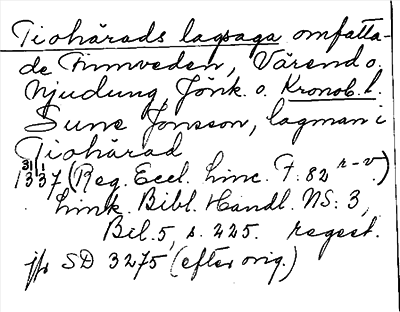 Tiohärads lagsaga omfatta-
de Finnveden, Värend o.
Njudung Jönk. o. Kronob. l.
Sune Jonsson, lagman i
Tiohärad
1337 31/1 (Reg. Eccl. Linc. F. 82 r-v.)
Link. Bibl. Handl. NS: 3,
Bil. 5, s. 225. regest.
jfr SD 3275 (efter orig.)